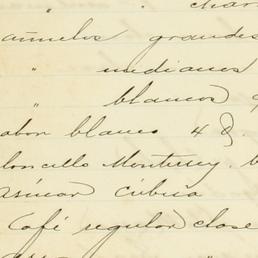 " " char
añuelos grandes
" medianos
" blancos
abon blanco 48.
loncillo Monterrey.
asúcar cubica
Café regular clase